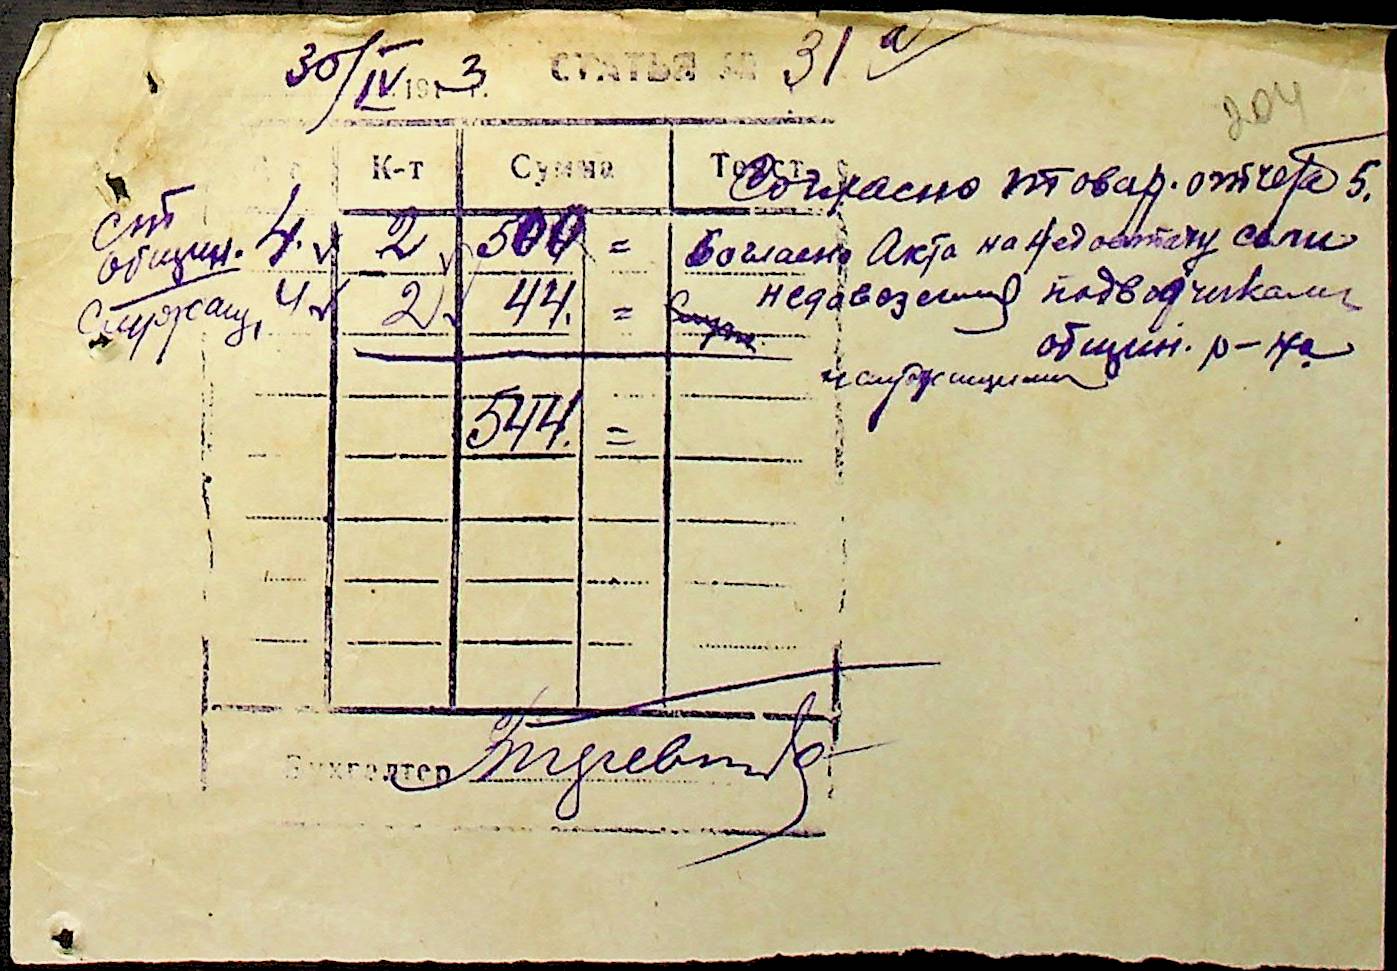 30/IV 1943 г. СТАТЬЯ № 31 а
204
Д-т К-т Сумма Текст
Согласно товар. отчета 5.
ст общин. 4. 2 500 = Согласно Акта на недостачу соли
недовезений подводчиками
служащ. 4 2 44. =
общин. р-на
и служащими
544. =
Бухгалтер